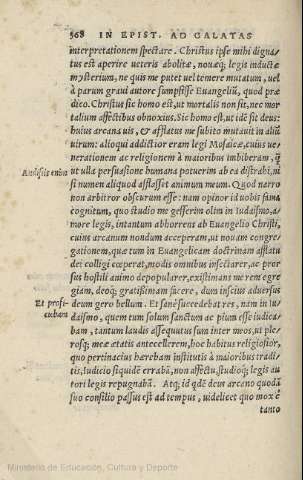 568 IN EPIST. AD GALATAS
interpretationem spectare. Christus ipse mihi digna/
tus est aperire ueteris abolitæ, nouæq; legis inductæ
mysterium, ne quis me putet uel temere mutatum, uel
à parum graui autore sumpsisse Euangeliũ, quod præ
dico. Christus sic homo est, ut mortalis non sit, nec mor
talium affectibus obnoxius. Sic homo est, ut idẽ sit deus:
huius arcana uis, & afflatus me subito mutauit in aliũ
uirum: alioqui addictior eram legi Mosaicæ, cuius ue/
nerationem ac religionem à maioribus imbiberam, q̃
Audistis enim
ut ulla persuasione humana potuerim ab ea distrahi, ni
si numen aliquod afflasset animum meum. Quod narro
non arbitror obscurum esse: nam opinor id uobis fama
cognitum, quo studio me gesserim olim in Iudaismo, a/
more legis, intantum abhorrens ab Euangelio Christi,
cuius arcanum nondum acceperam, ut nouam congre/
gationem, quæ tum in Euangelicam doctrinam afflatu
dei colligi cœperat, modis omnibus insectarer, ac pror
sus hostili animo depopularer, existimans me rem egre
giam, deoq; gratissimam facere, dum inscius aduersus
Et profi/
ciebam
deum gero bellum. Et sanè succedebat res, nam in Iu/
daismo, quem tum solum sanctum ac pium esse iudica/
bam, tantum laudis assequutus sum inter meos, ut ple/
rosq; meæ ætatis antecellerem, hoc habitus religiosior,
quo pertinacius hærebam institutis à maioribus tradi/
tis. Iudicio siquidẽ errabã, non affectu, studioq; legis au
tori legis repugnabã. Atq; id qdẽ deus arcano quodã
suo consilio passus est ad tempus, uidelicet quo mox è
tanto
Ministerio de Educación, Cultura y Deporte